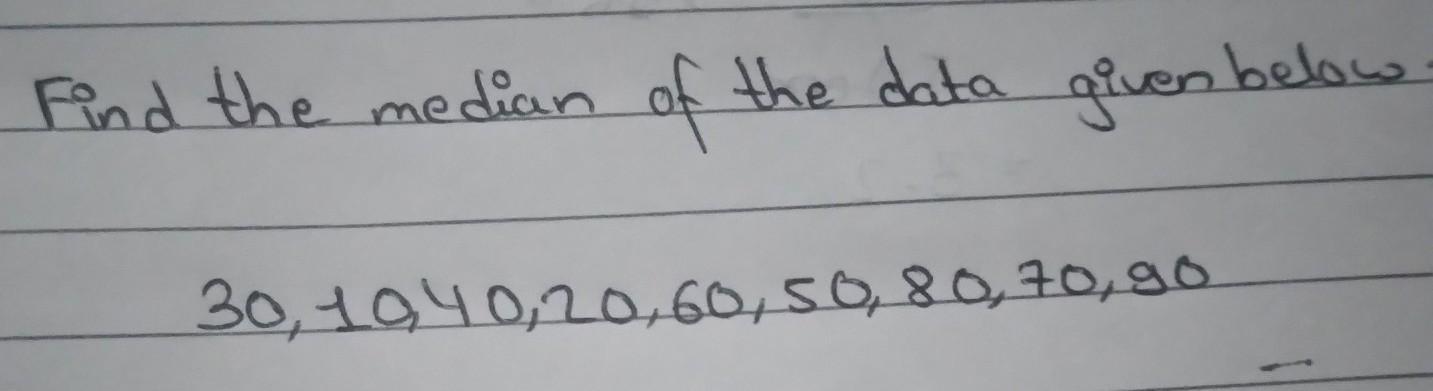 Find the median of the data given below.
30, 10, 40, 20, 60, 50, 80, 70, 90